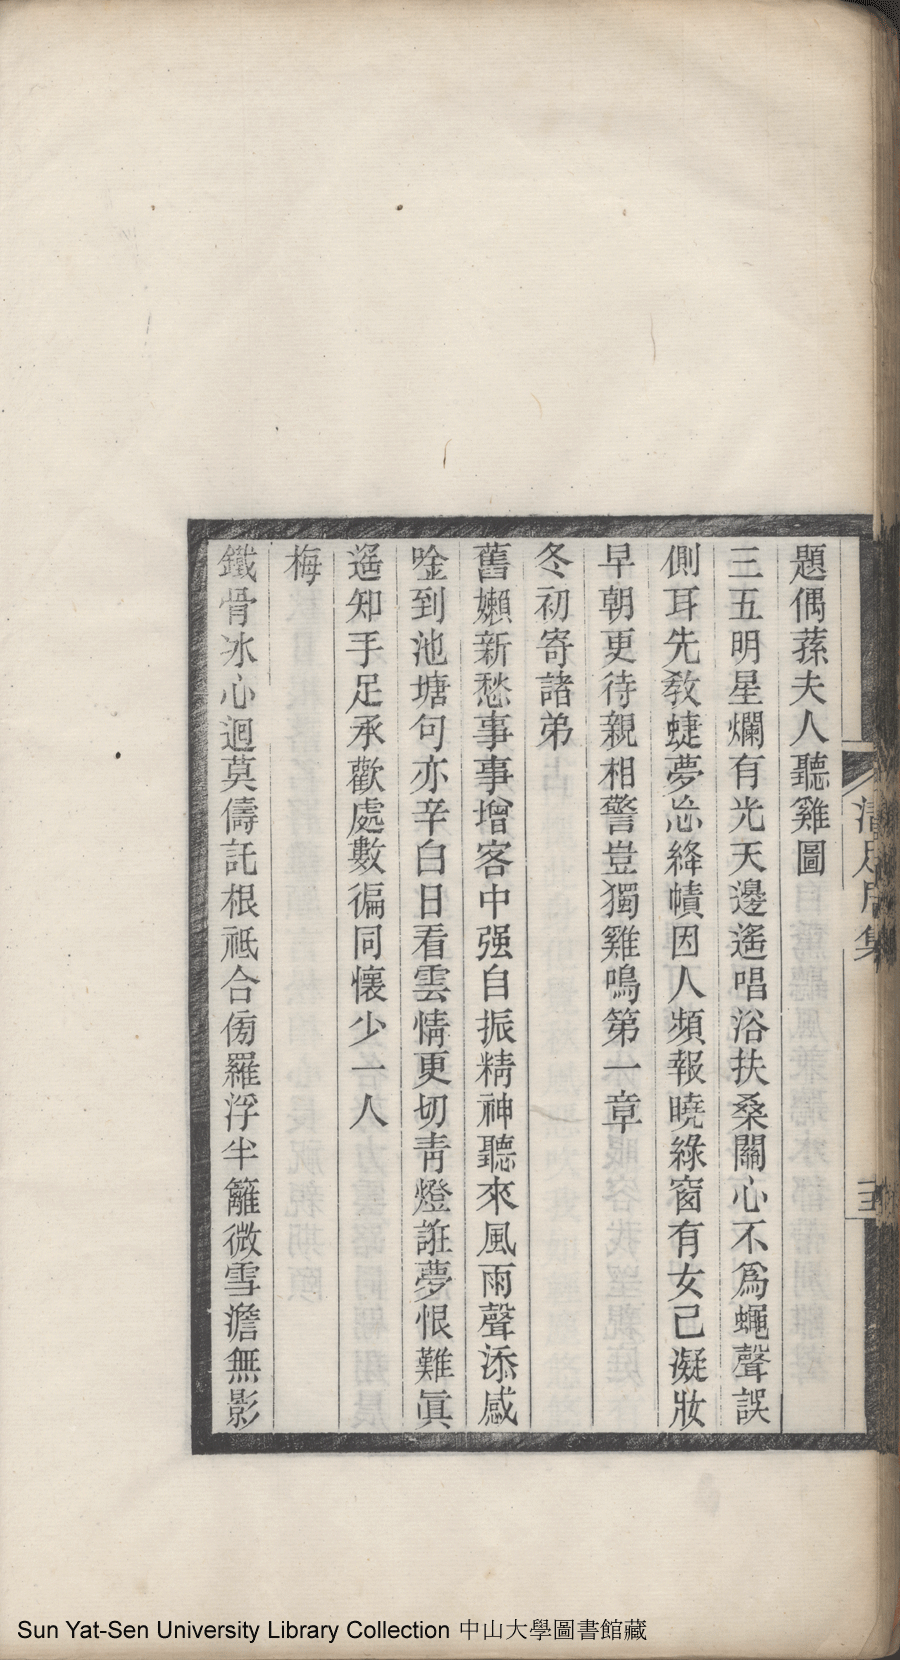 題偶蓀夫人聽雞圖
三五明星爛有光天邊遙唱浴扶桑關心不爲蠅聲誤
側耳先敎蜨夢忘絳幘因人頻報曉綠窗有女已凝妝
早朝更待親相警豈獨雞鳴第一章
冬初寄諸弟
舊嬾新愁事事增客中强自振精神聽來風雨聲添感
唫到池塘句亦辛白日看雲情更切靑燈誑夢恨難眞
遙知手足承歡處數徧同懷少一人
梅
鐵骨冰心迥莫儔託根祗合傍羅浮半籬微雪澹無影
清足居集
Sun Yat-Sen University Library Collection 中山大學圖書館藏